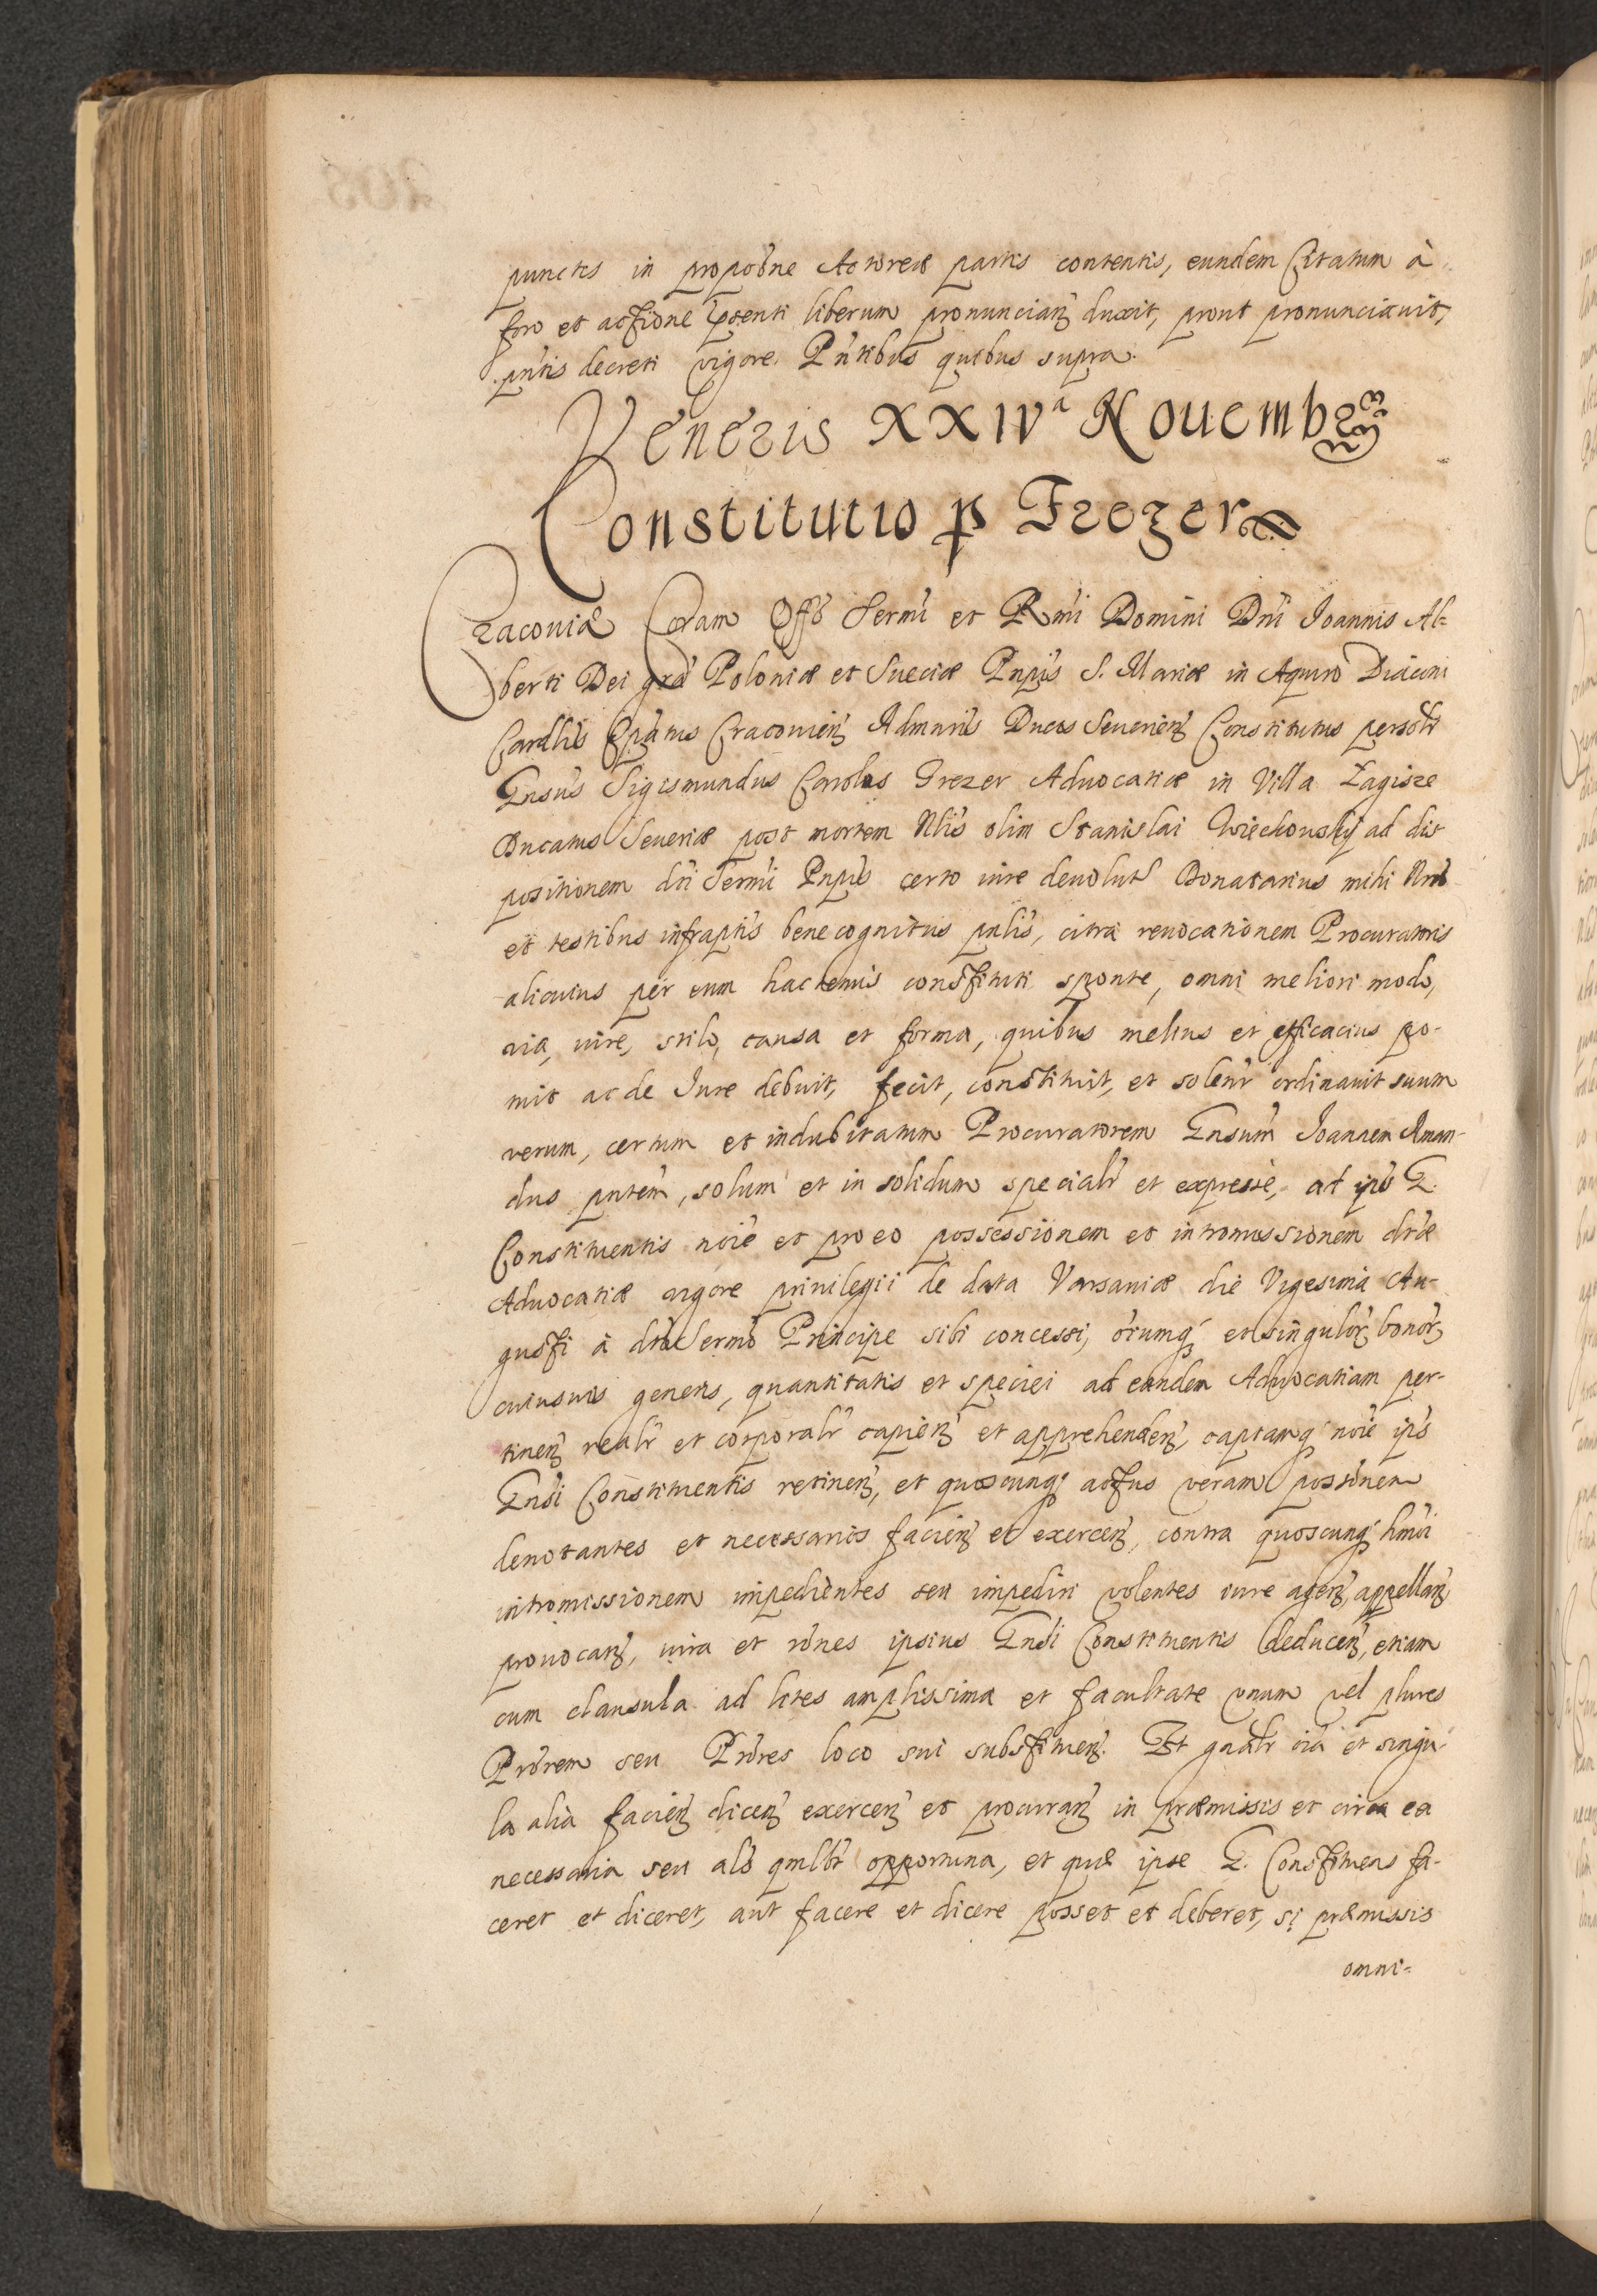 punctis in propoñe Actoreæ partis contentis, eundem Citatum à
foro et actione pñenti liberum pronunciañ duxit, prout pronunciauit,
pñtis decreti vigore. Pñtibus quibus supra.
Veneris XXIVᵃ Nouembris
Constitutio p Frezer
Cracoviæ Coram Offo Sermi et Rmi Domini Dni Joannis Al=
berti Dei gra Poloniæ et Sueciæ Pnpis S. Mariæ in Aquiro Diaconi
Cardlis Epatus Cracovien Admnris Ducis Severien Constitutus persolr
Gnsus Sigismundus Carolus Frezer Advocatiæ in Villa Zagisze
Ducatus Severiæ post mortem Nlis olim Stanislai Wiechowskij ad dis
positionem dti Sermi Pnpis certo iure devolut Donatarius mihi Nrio
et testibus infraptis bene cognitus pnlis, citra revocationem Procuratoris
alicuius per eum hactenus constituti sponte, omni meliori modo,
via, iure, stilo, causa et forma, quibus melius et efficacius po-
tuit ac de Jure debuit, fecit, constituit, et solenr ordinavit suum
verum, certum et indubitatum Procuratorem Gnsum Joannem Aman-
dus pntem, solum et in solidum specialr et expresse, ad ipius G.
Constituentis noie et pro eo possessionem et intromissionem dtæ
Advocatiæ vigore privilegii de data Varsaviæ die Vigesima Au-
gusti à dto Sermo Principe sibi concessi, oiumq; et singulor bonor
cuiusvis generis, quantitatis et speciei ad eandem Advocatiam per-
tinen realr et corporalr capien et apprehenden, captamq; noie ipis
Gnsi Constituentis retinen, et quoscunq; actus veram possonem
denotantes et necessarios facien et exercen, contra quoscunq; hmoi
intromissionem impedientes seu impediri volentes iure agen, appellan
provocan, iura et rones ipsius Gnsi Constituentis deducen, etiam
cum clausula ad lites amplissima et facultate vnum vel plures
Prorem seu Prores loco sui substituen. Et gnalr oia et singu-
la alia facien dicen exercen et procuran in præmissis et circa ea
necessaria seu als qmlbt opportuna, et quæ ipse G. Constituens fa-
ceret et diceret, aut facere et dicere posset et deberet, si præmissis
omni=